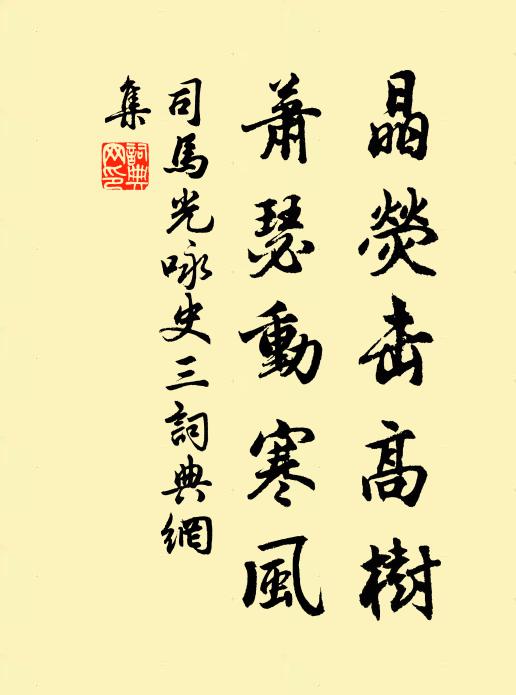 晶熒出高樹
蕭瑟動寒風
司馬光咏史三詞典網
集
詞典网印